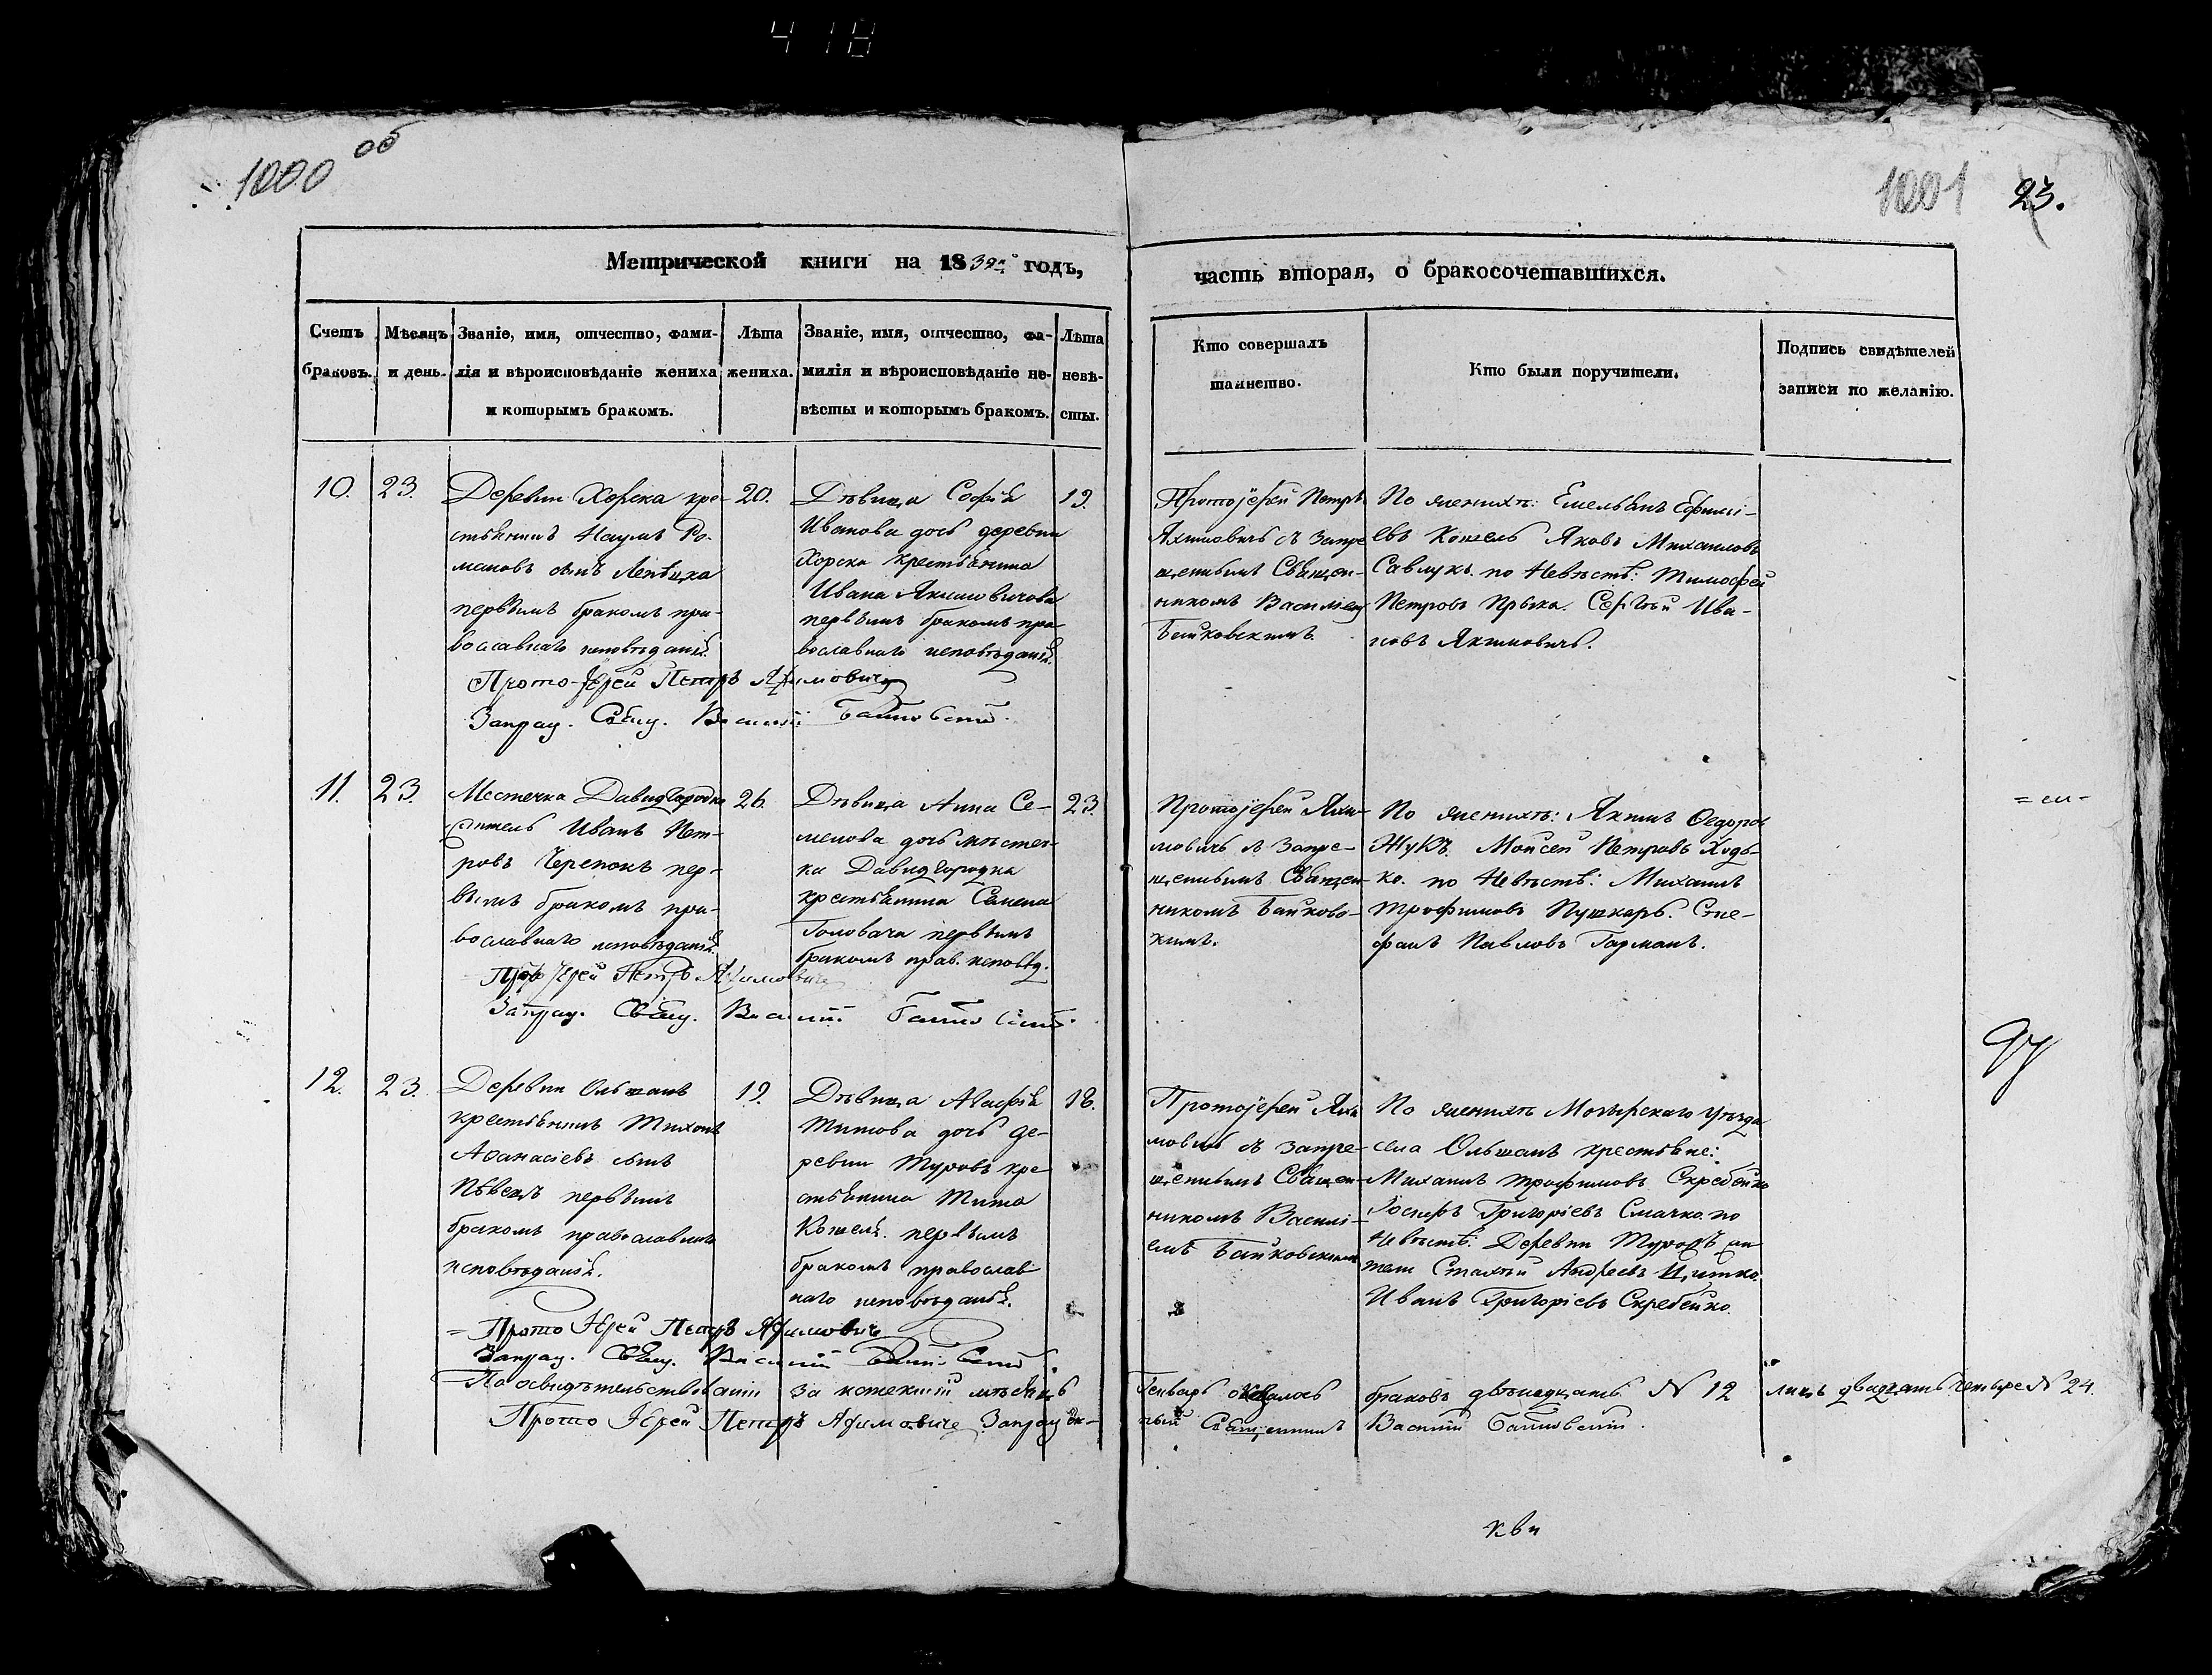 418
1000 об
1001 23.
Метрической книги на 1839й годъ,
часть вторая, о бракосочетавшихся.
Счетъ браковъ.
Мѣсяцъ и день.
Званіе, имя, отчество, фами-
лія и вѣроисповѣданіе жениха
и которымъ бракомъ.
Лѣта
жениха.
Званіе, имя, отчество, фа-
милія и вѣроисповѣданіе не-
вѣсты и которымъ бракомъ.
Лѣта
невѣ-
сты.
Кто совершалъ
таинство.
Кто были поручители.
Подпись свидѣтелей
записи по желанію.
10.
23.
Деревни Хорска кре-
стьянинъ Наумъ Ро-
мановъ сынъ
первымъ бракомъ пра-
вославнаго исповѣданія.
20.
Дѣвица Софія
Иванова дочь деревни
Хорска крестьянина
Ивана Якимовичова
первымъ бракомъ пра-
вославнаго исповѣданія.
19.
Протоіерей Петръ
Яхимовичь съ запре
щеннымъ Священ-
никомъ Василіемъ
По женихѣ: Емельянъ Ефимі-
евъ Кошель Яковъ Михаиловъ
Савлукъ. по Невѣстѣ: Тимофей
Петровъ Сергѣй Ива-
новъ Якимовичь.
Прото-Іерей Петръ
Запрещ. Свящ. Василій
11.
23.
Местечка Давидгородка
житель Иванъ Пет-
ровъ Черепокъ пер-
вымъ бракомъ пра-
вославнаго исповѣданія.
26.
Дѣвица Анна Се-
менова дочь мѣстеч-
ка Давидгородка
крестьянина Семена
Головача первымъ
бракомъ прав. исповѣд.
23.
Протоіерей Яхи-
мовичь съ Запре-
щеннымъ Священ-
никомъ
кимъ.
По женихѣ: Якимъ Федоров
Жукъ. Моисей Петровъ Ходь-
ко. по Невѣстѣ: Михаилъ
Трофимовъ Пушкарь. Сте-
фанъ Павловъ Гарманъ.
Прото Іерей Петръ
Запрещ. Свящ. Василій
12.
23.
Деревни Ольшанъ
крестьянинъ Тихонъ
Афанасіевъ сынъ
Пѣвецъ первымъ
бракомъ православнаго
исповѣданія.
19.
Дѣвица Агафія
Титова дочь де-
ревни Туровъ кре-
стьянина Тита
Кошеля. первымъ
бракомъ православ
наго исповѣданія.
18.
Протоіерей Яхи
мовичь съ запре-
щеннымъ Священ-
никомъ Василі-
емъ
По женихѣ Мозырскаго уѣзда
села Ольшанъ крестьяне:
Михаилъ Трофимовъ Скребейко
Іосифъ Григоріевъ Смачко. по
Невѣстѣ: Деревни
Андреевъ
Иванъ Григоріевъ Скребейко.
Прото Іерей Петръ
Запрещ. Свящ. Василій
По освидѣтельствованіи за истекшій мѣсяцъ Генварь оказалось браковъ двѣнадцать № 12 лицъ двадцать четыре № 24.
Прото Іерей Петръ Запрещен-
ный Священникъ Василій